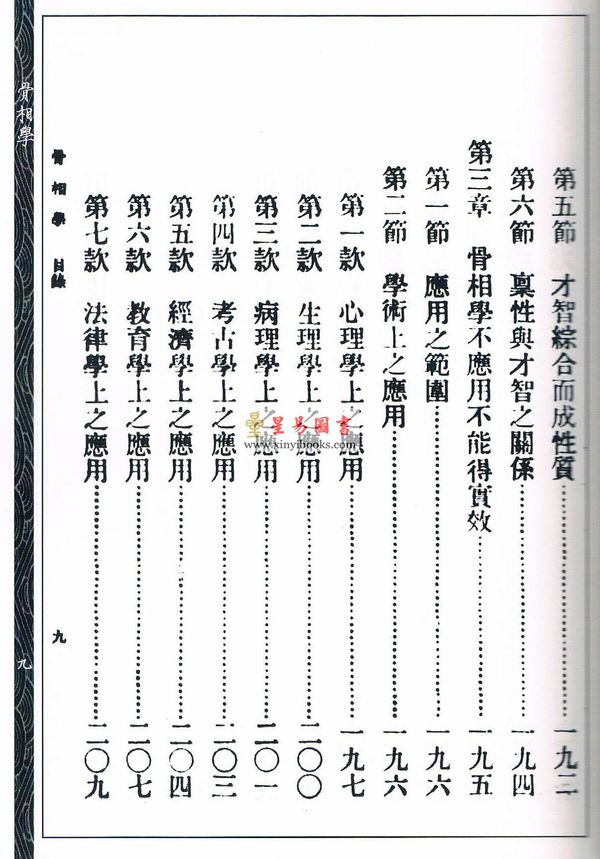 第五節 才智綜合而成性質……一九二
第六節 稟性與才智之關係……一九四
第三章 骨相學不應用不能得實效……一九五
第一節 應用之範圍……一九六
第二節 學術上之應用……一九六
第一款 心理學上之應用……一九七
第二款 生理學上之應用……二〇〇
第三款 病理學上之應用……二〇一
第四款 考古學上之應用……二〇三
第五款 經濟學上之應用……二〇四
第六款 教育學上之應用……二〇七
第七款 法律學上之應用……二〇九
骨相學 目錄 九
骨相學 九
星易圖書
www.xinyibooks.com